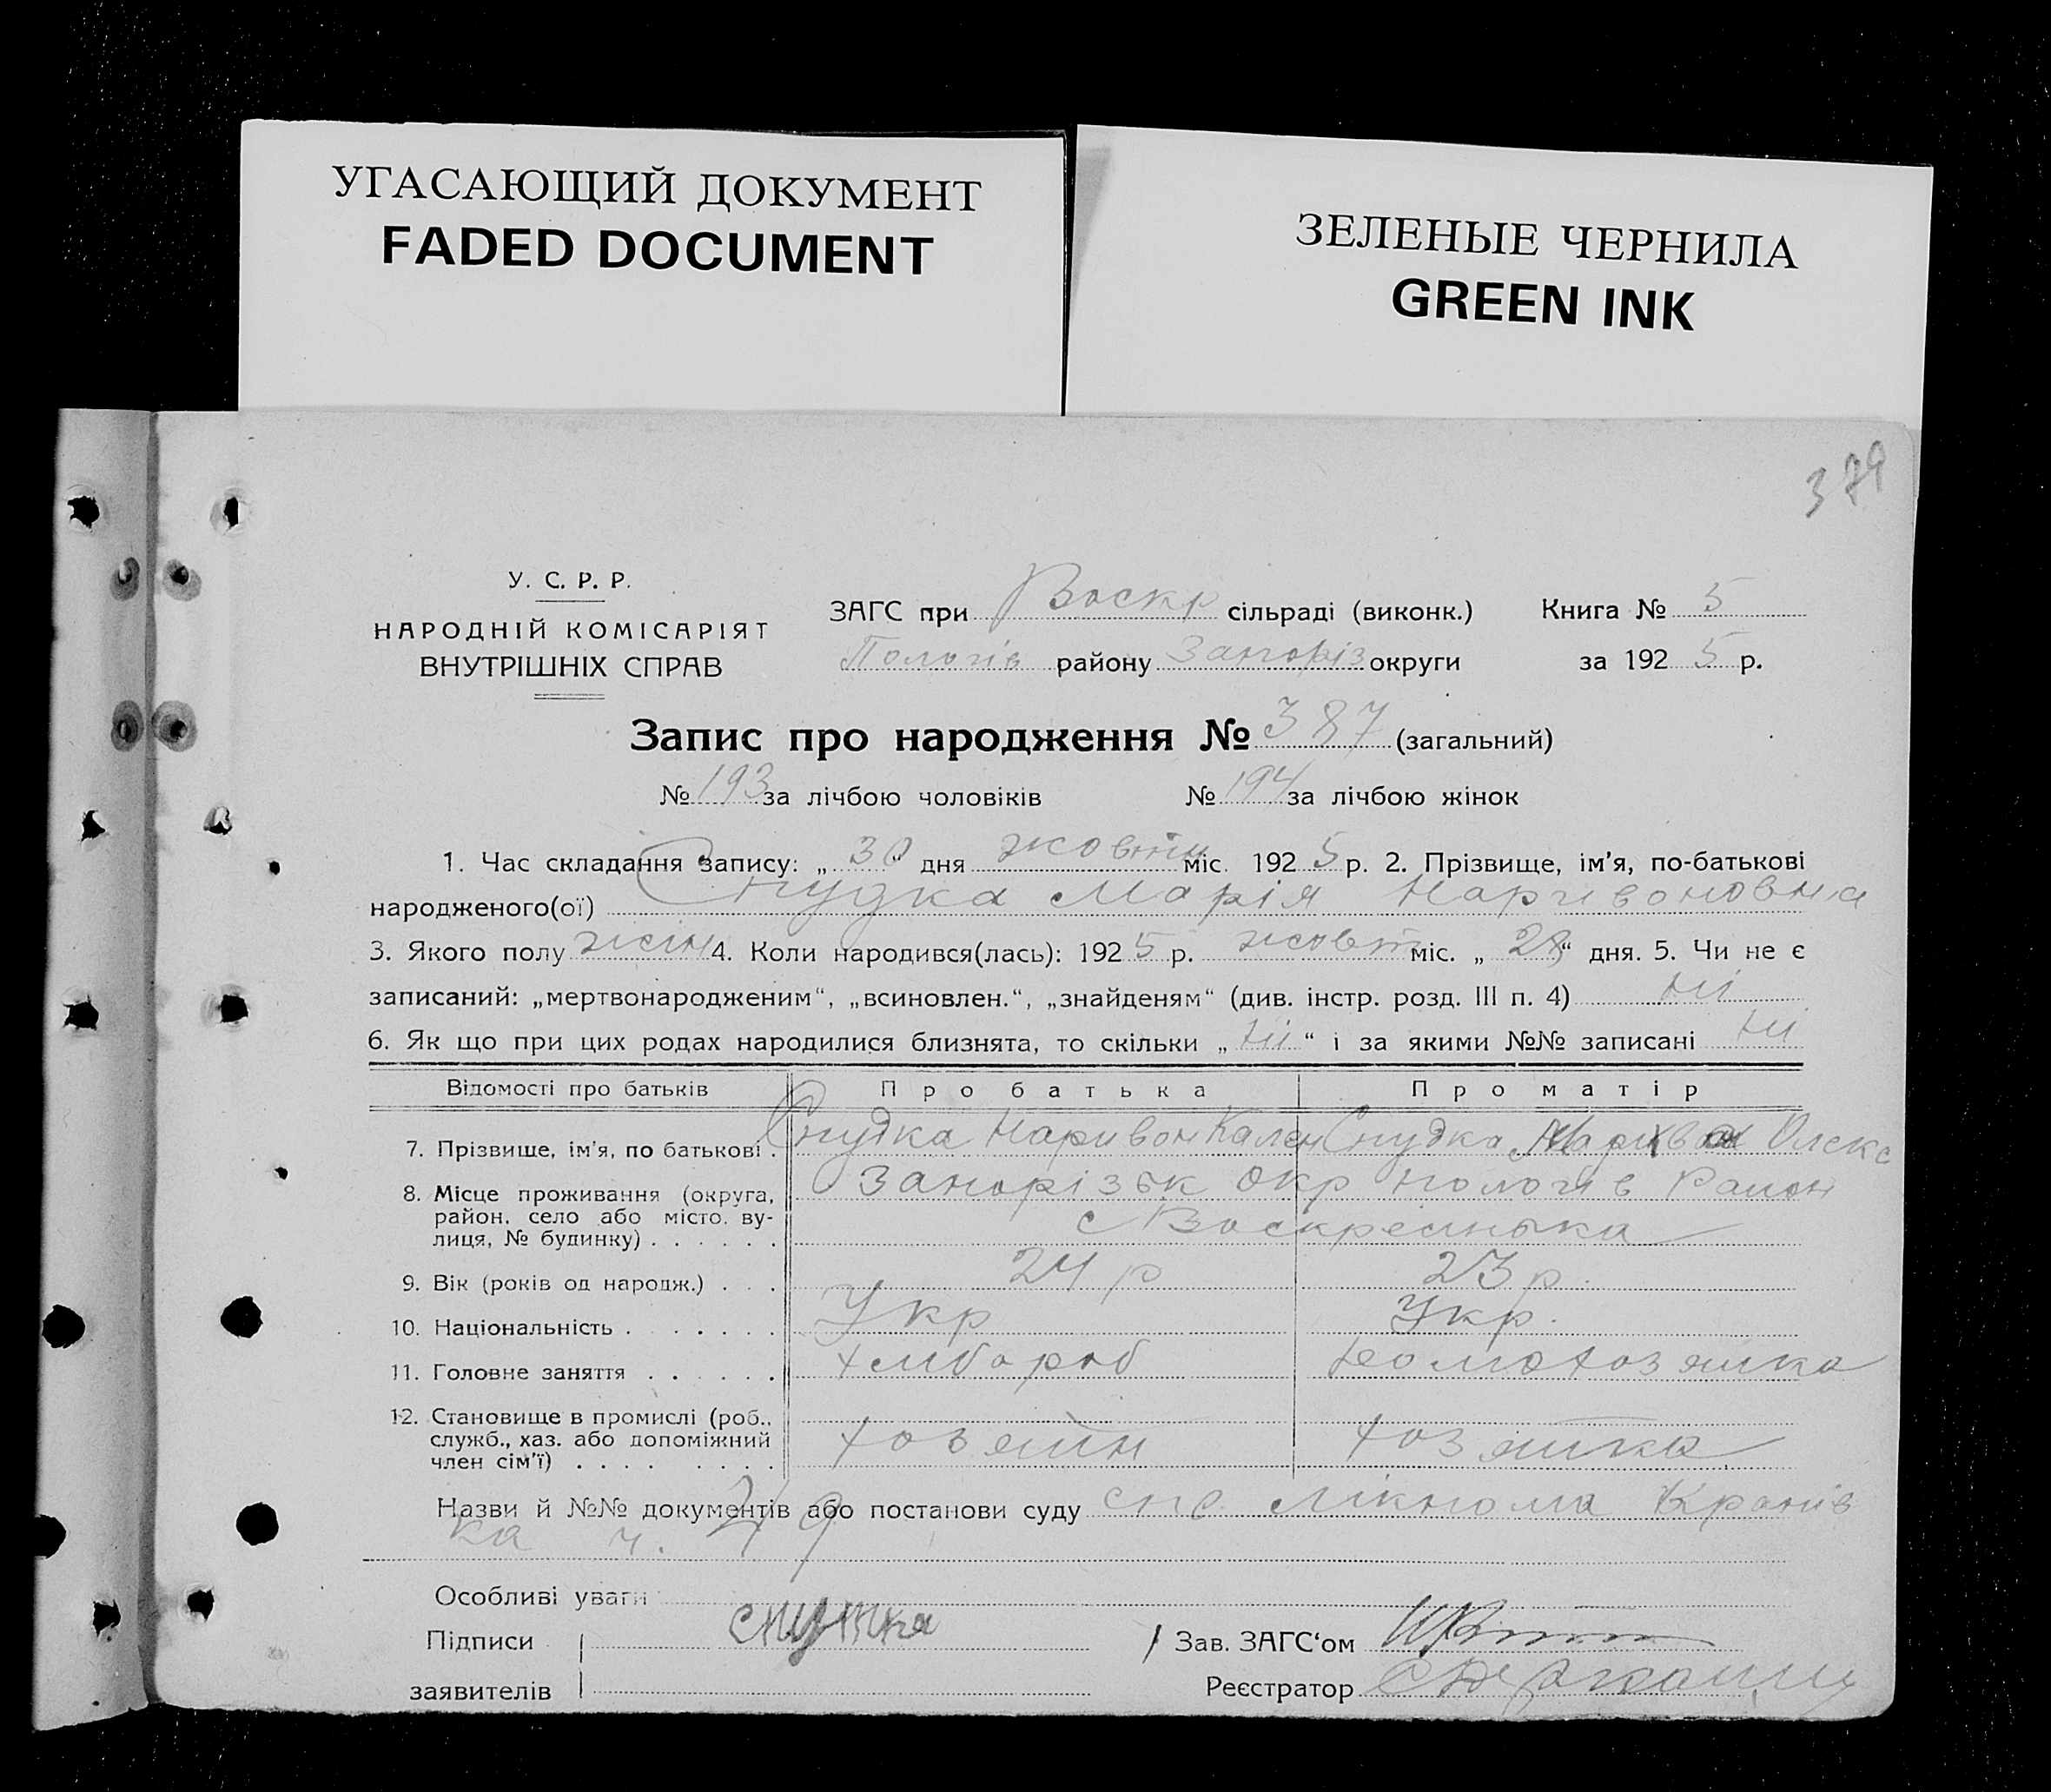 УГАСАЮЩИЙ ДОКУМЕНТ
FADED DOCUMENT
ЗЕЛЕНЫЕ ЧЕРНИЛА
GREEN INK
379
У. С. Р. Р.
НАРОДНІЙ КОМІСАРІЯТ
ВНУТРІШНІХ СПРАВ
ЗАГС при Воскр сільраді (виконк.) Книга № 5
Пологів району Запоріз округи за 192 5 р.
Запис про народження № 387 (загальний)
№ 193 за лічбою чоловіків № 194 за лічбою жінок
1. Час складання запису: „ 30 “ дня жовтня міс. 192 5 р. 2. Прізвище, ім'я, по-батькові
народженого(ої) Снудка Марія Наривоновна
3. Якого полу жін 4. Коли народився(лась): 192 5 р. жовт міс. „ 28 “ дня. 5. Чи не є
записаний: „мертвонародженим“, „всиновлен.“, „знайденям“ (див. інстр. розд. III п. 4) ні
6. Як що при цих родах народилися близнята, то скільки „ ні “ і за якими №№ записані ні
Відомості про батьків Про батька Про матір
7. Прізвище, ім'я, по батькові . Снудка Наривон Кален Снудка Олекс
8. Місце проживання (округа, Запорізьк Окр Пологів Район
район, село або місто, ву- с Воскресенька
лиця, № будинку) . . . . . .
9. Вік (років од народж.) . . . 24 р 23 р.
10. Національність . . . . . . . Укр Укр.
11. Головне заняття . . . . . . хлібороб домохозяйка
12. Становище в промислі (роб.,
служб., хаз. або допоміжний хозяїн хозяйка
член сім'ї) . . . . . . . .
Назви й №№ документів або постанови суду спс лікпома Кранів
ка ч. 29
Особливі уваги
Підписи снутка Зав. ЗАГС‘ом
заявителів Реєстратор